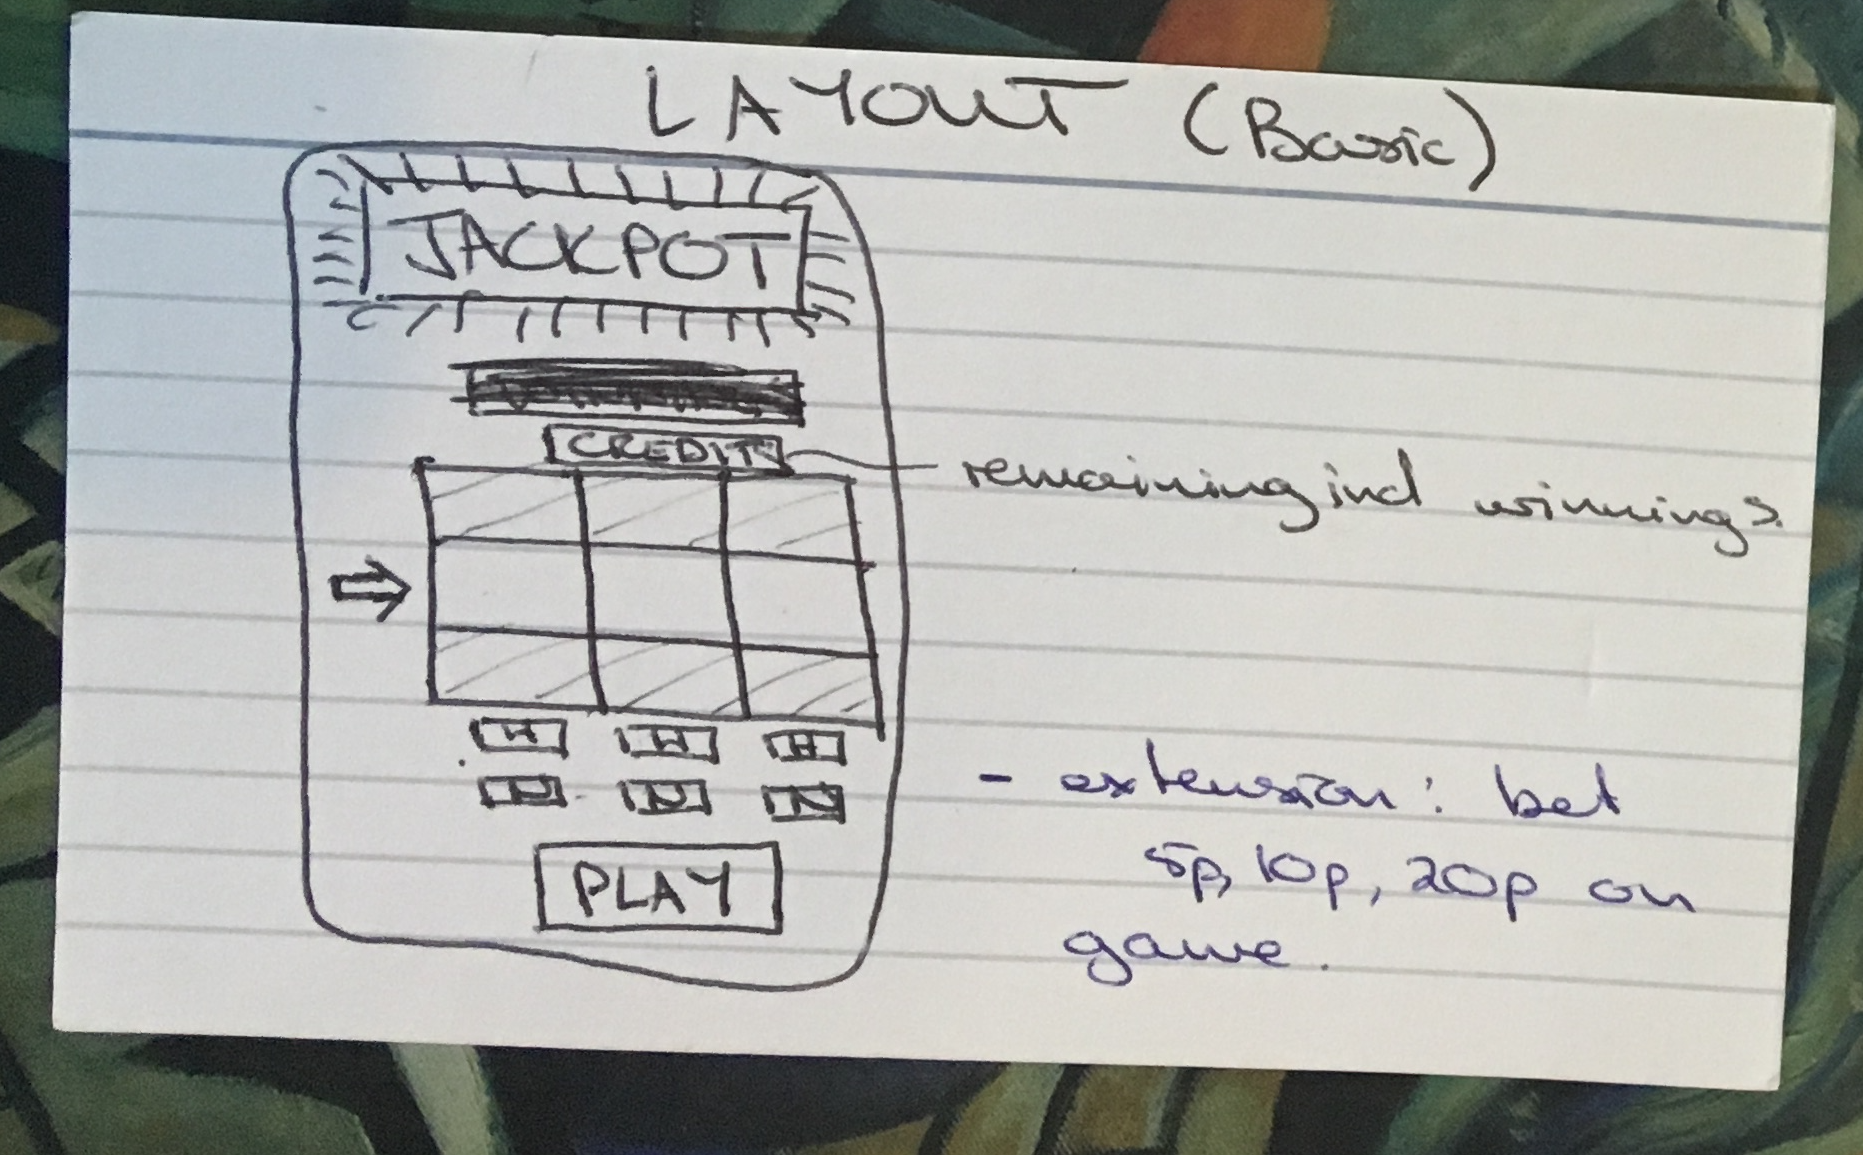 LAYOUT (Basic)
JACKPOT
CREDITS
remaining incl winnings.
H H H
N N N
- extension: bet
5p, 10p, 20p on
game.
PLAY